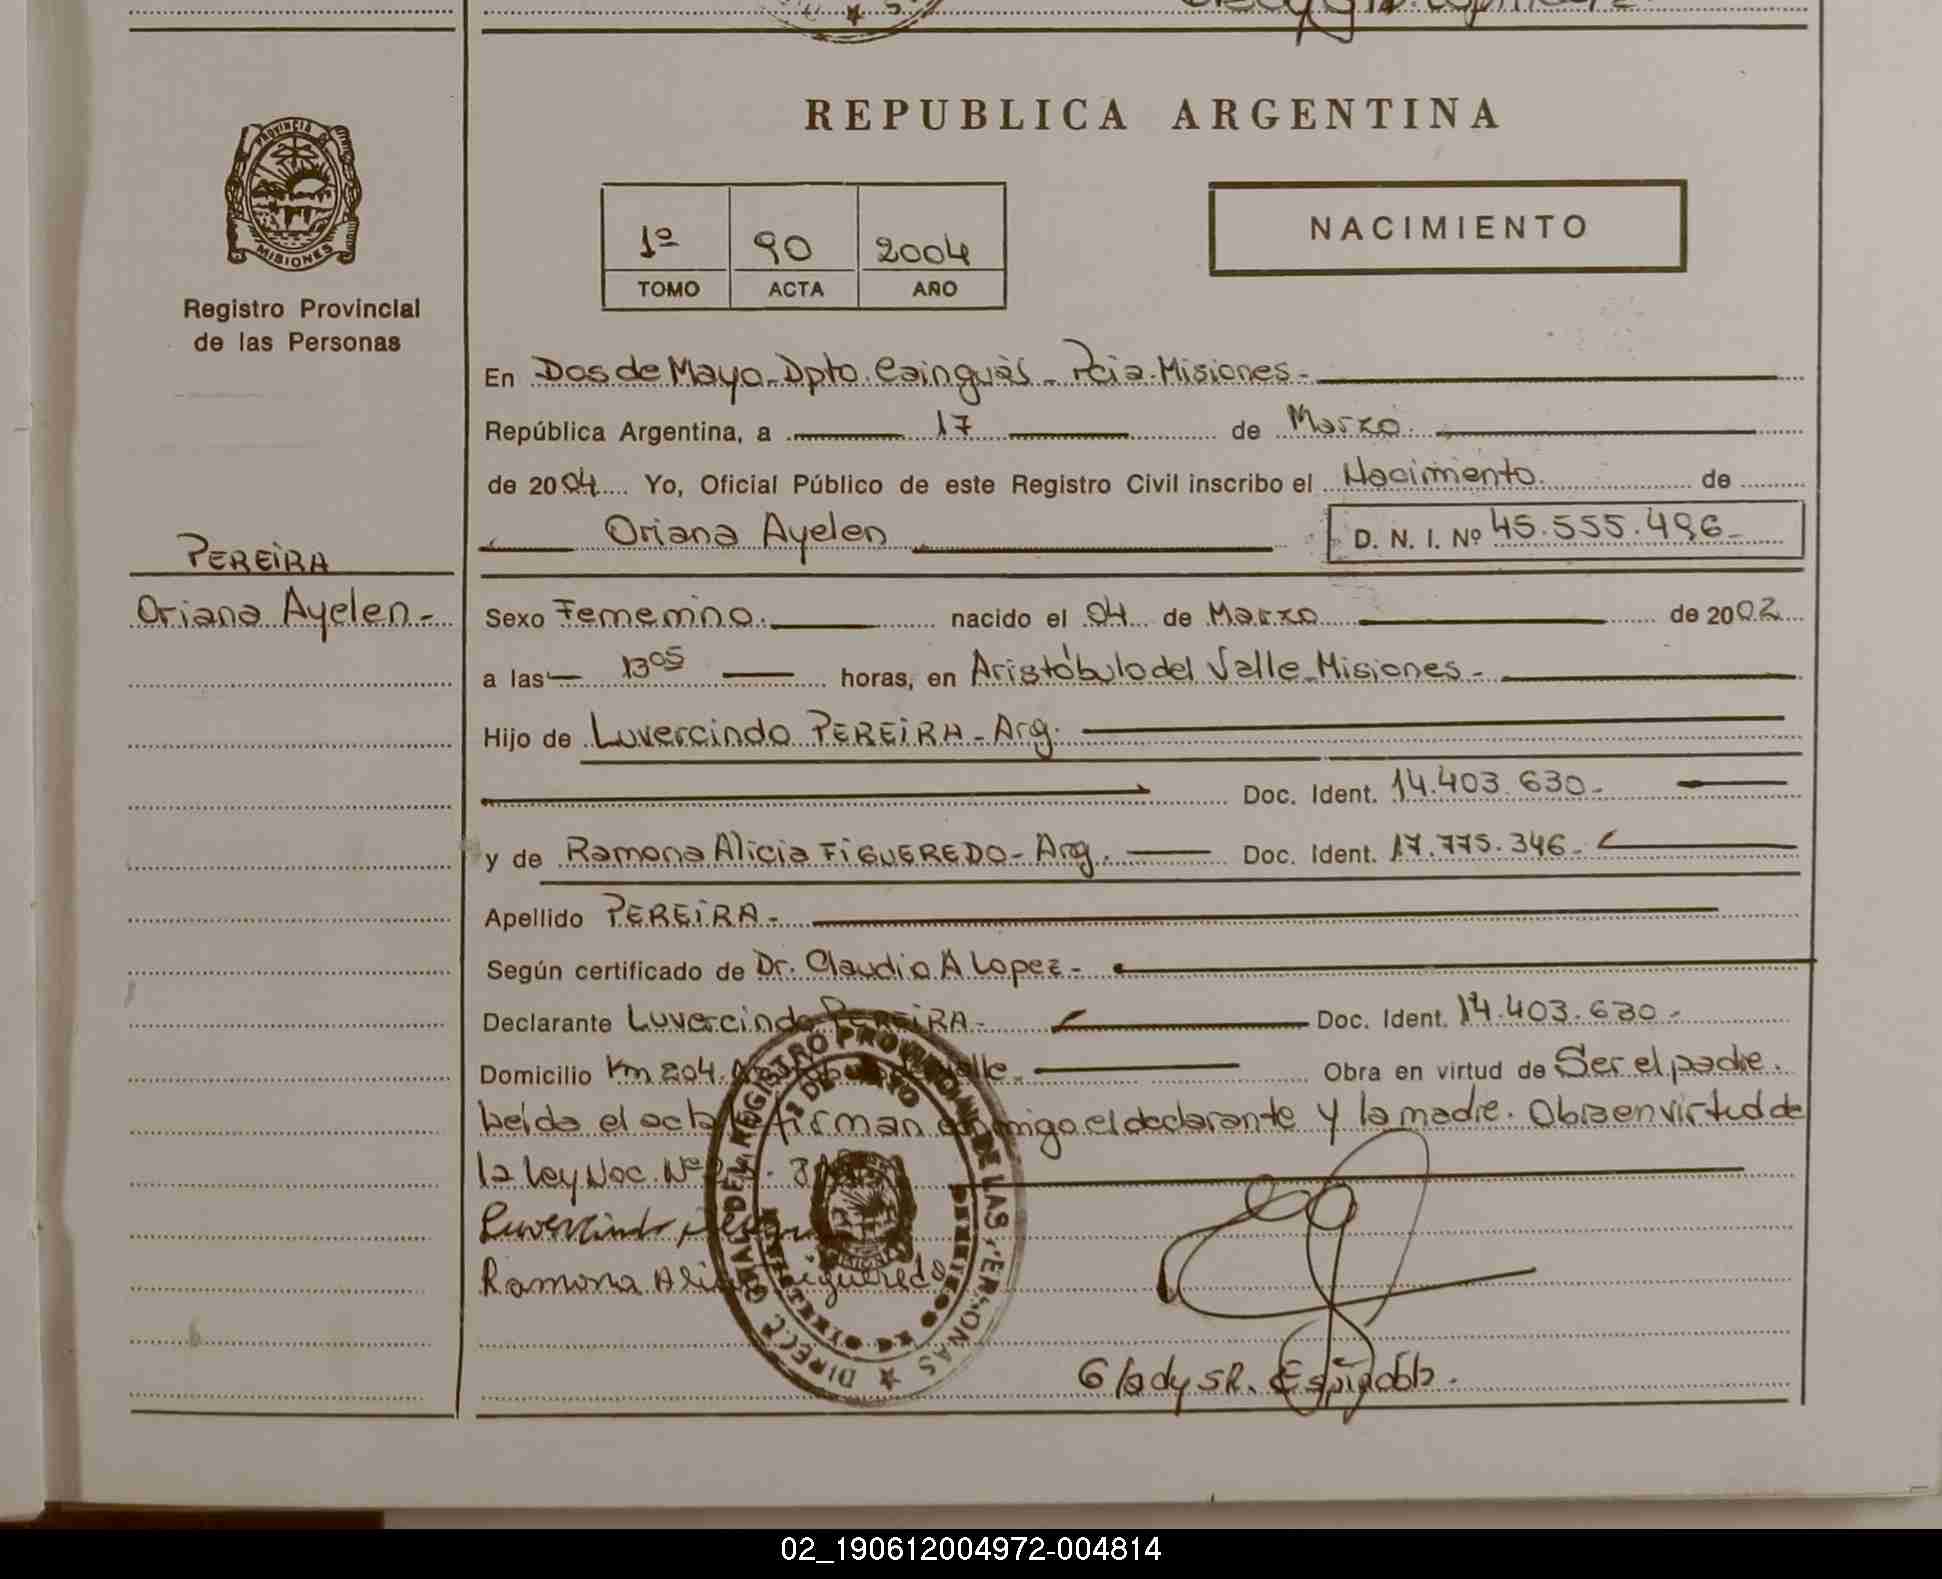 PROVINCIA DE
MISIONES
Registro Provincial
de las Personas
PEREIRA
Oriana Ayelen-
REPUBLICA ARGENTINA
1º 90 2004
TOMO ACTA AÑO
NACIMIENTO
En Dos de Mayo-Dpto. Cainguàs-Pcia.Misiones-
República Argentina, a 17 de Marzo.
de 2004 Yo, Oficial Público de este Registro Civil inscribo el Nacimiento. de
Oriana Ayelen D. N. I. Nº 45.555.496-
Sexo Femenino. nacido el 04 de Marzo de 2002
a las 13 05 horas, en Aristóbulo del Valle-Misiones-
Hijo de Luvercindo PEREIRA-Arg.
Doc. Ident. 14.403.630-
y de Ramona Alicia FIGUEREDO-Arg. Doc. Ident. 17.775.346-
Apellido PEREIRA-
Según certificado de Dr. Claudio A Lopez-
Declarante Luvercindo PEREIRA- Doc. Ident. 14.403.630-
Domicilio Km 204. Valle- Obra en virtud de Ser el padre.
Leida el acta firman conmigo el declarante y la madre. Obra en virtud de
la Ley Nac. Nº
Luvercindo
Ramona Alicia Figueredo
DIRECC. GRAL DEL REGISTRO PROVINCIAL DE LAS PERSONAS
2 DE MAYO
Gladys R. Espindola.
02_190612004972-004814